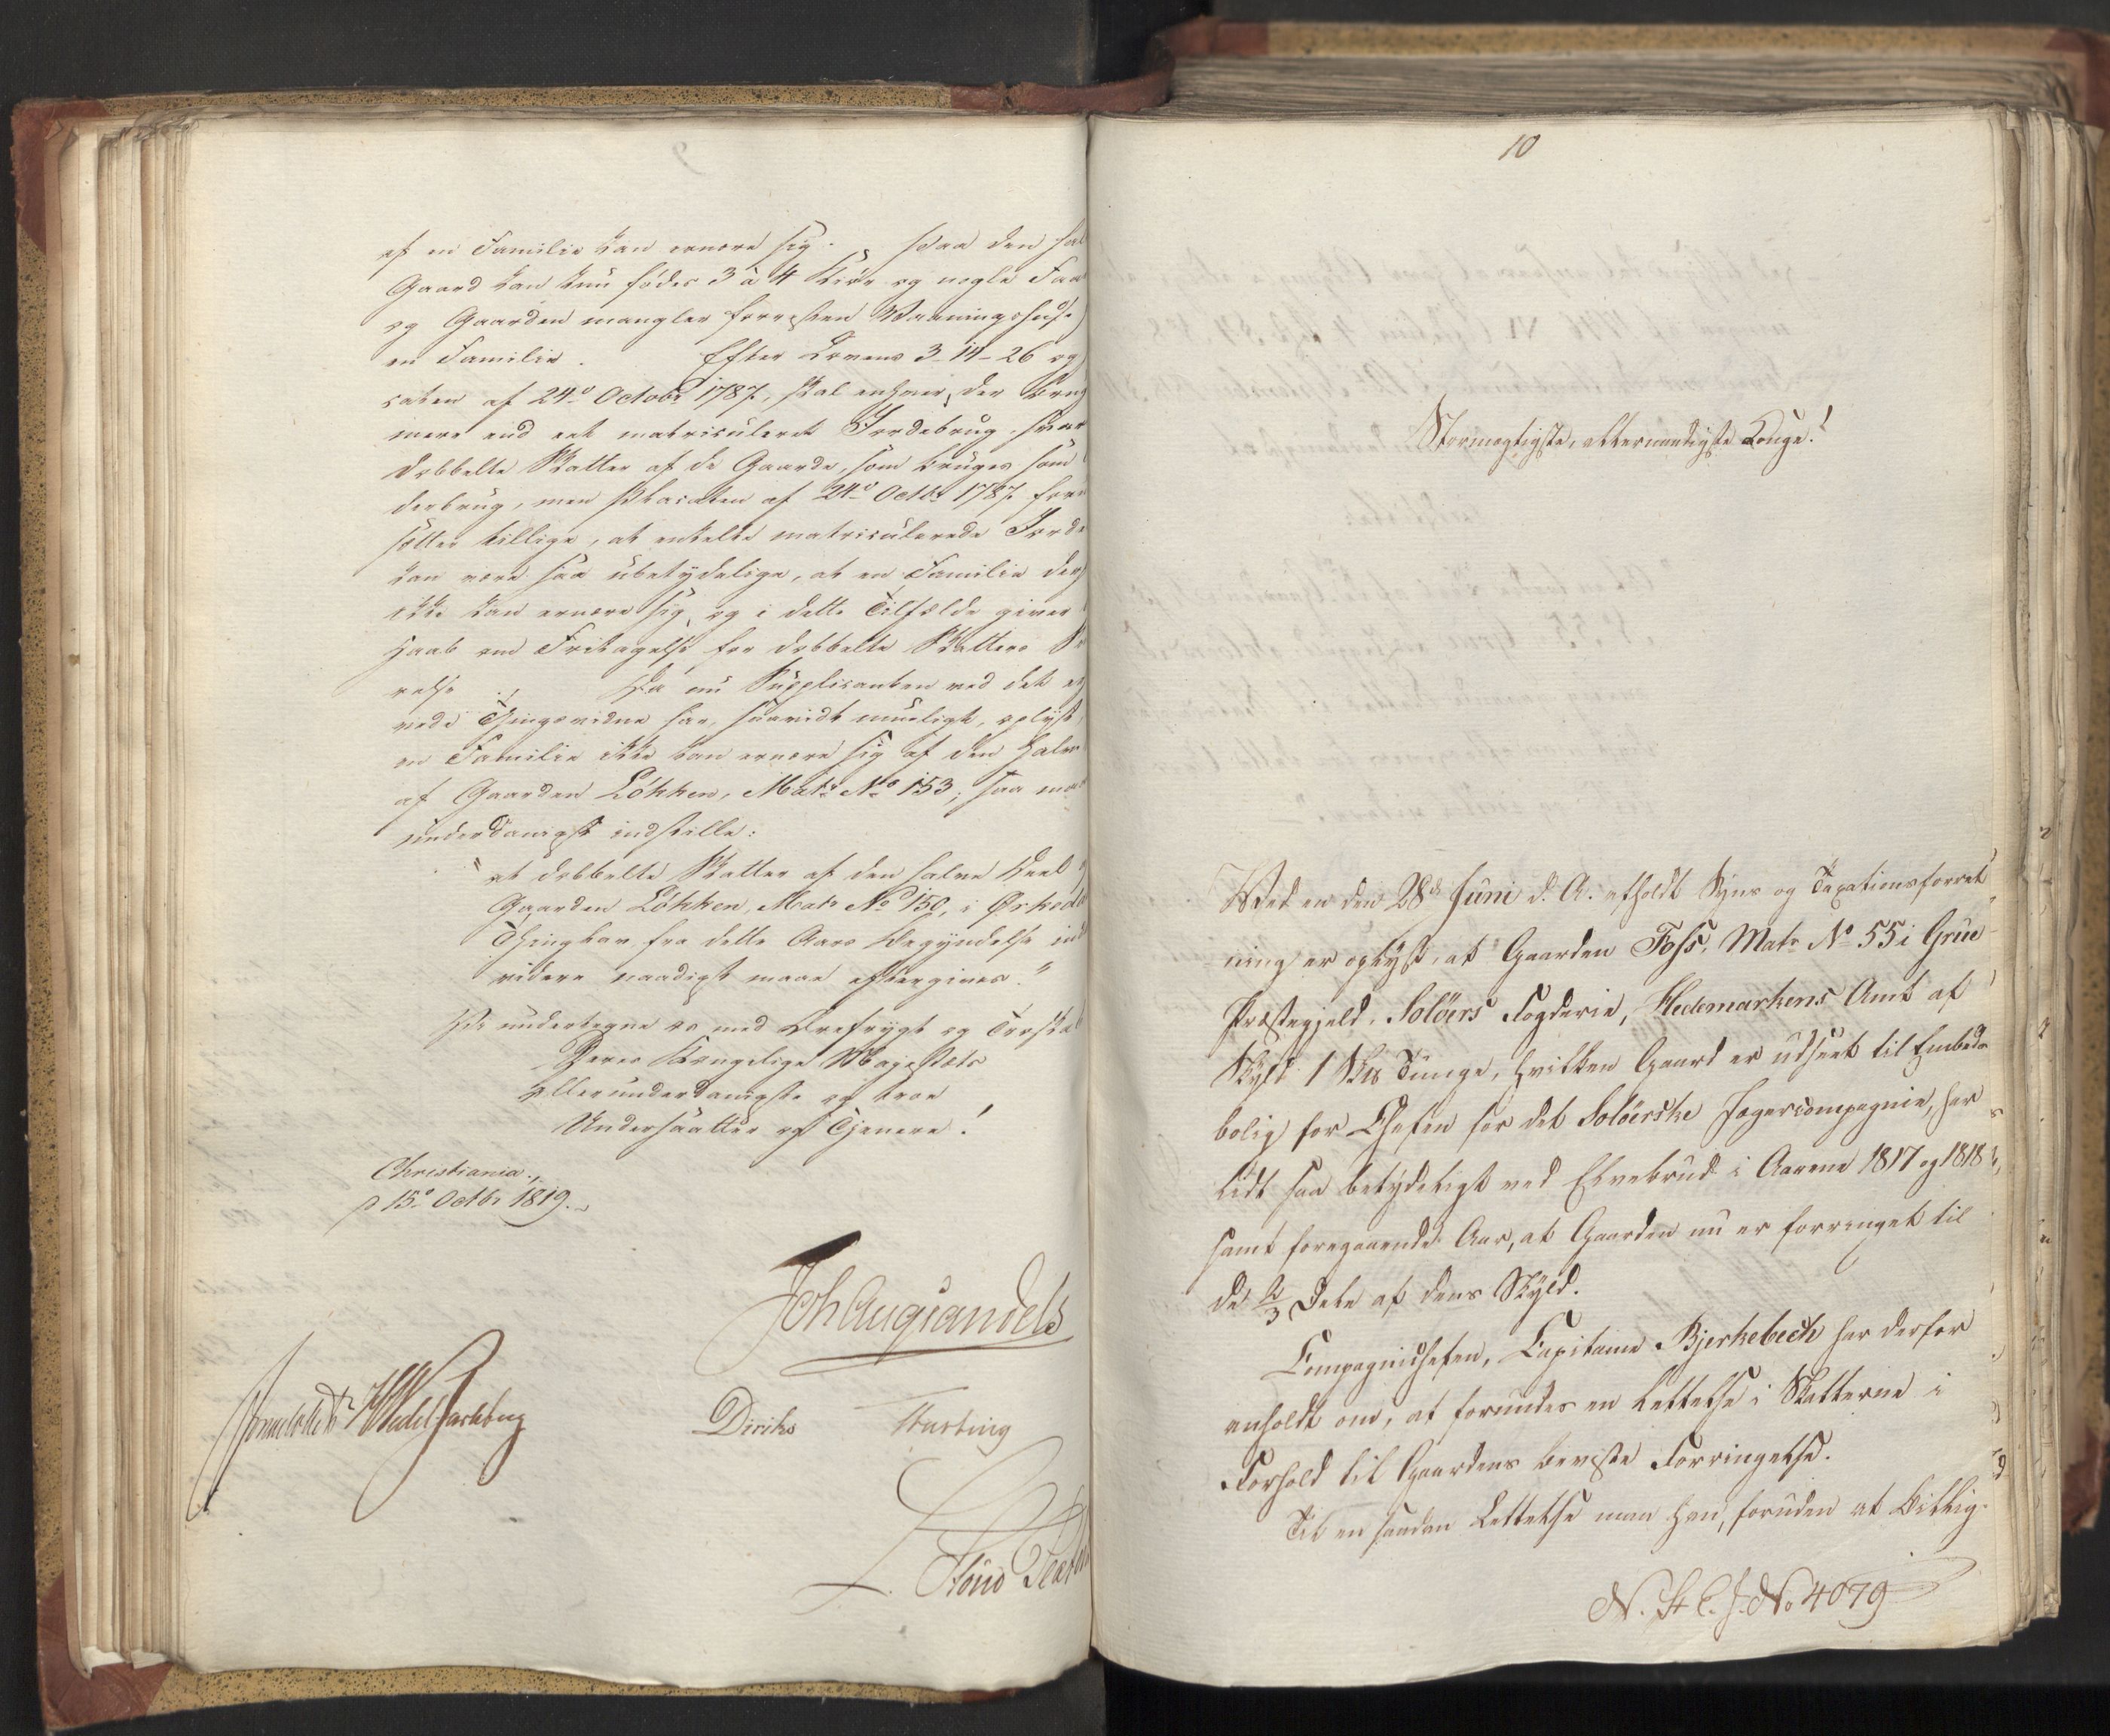 af en Familie kan ernære sig. Paa den hal
Gaard kan kun födes 3 à 4 Kiör og nogle Faa
og Gaarden mangler forresten Vaaningshuse
en Familie. Efter Lovens 3-14-26 og
caten af 24de Octobr 1787, skal enhver, der brug
mere end eet matriculeret Jordebrug, svar
dobbelte Skatter af de Gaarde, som bruges som
derbrug, men Placaten af 24de Octbr 1787 foru
sætter tillige, at enkelte matriculerede Jorde
kan være saa ubetydelige, at en Familie der
ikke kan ernære sig, og i dette Tilfælde giver
Haab om Fritagelse for dobbelte Skatters
relse. Da nu Supplicanten ved det er
vede Thingsvidne har, saavidt mueligt, oplyst,
en Familie ikke kan ernære sig af den halve
af Gaarden Lökken, Matr No 153; saa maa
underdanigst indstille:
"at dobbelte Skatter af den halve Deel
Gaarden Lökken, Matr No 150, i Ørkedal
Thinglav fra dette Aars Begyndelse ind
videre naadigst maae eftergives."
Vi undertegne os med Ærefrygt og Troskab
Deres Kongelige Majestæts
allerunderdanigste og troe
Undersaatter og Tjenere!
Christiania,
d 15de Octbr 1819.
Joh Aug Sandels
HWedel Jarlsberg
Diriks
Hertzberg
10
Stormægtigste, allernaadigste Konge!
Ved en den 28de Juni d. A. afholdt Syns og Taxationsforret
ning er oplyst, at Gaarden Foss, Matr No 55 i Grue
Præstegjeld, Solöers Fogderie, Hedemarkens Amt af
Skyld 1 Skp Tunge, hvilken Gaard er udseet til Embeds
bolig for Chefen for det Solöerske Jægercompagnie, har
lidt saa betydeligt ved Elvebrud i Aarene 1817 og 1818,
samt foregaaende Aar, at Gaarden nu er forringet til
de 2/3 Dele af dens Skyld.
Compagniechefen, Capitaine Bjerkebech har derfor
anholdt om, at forundes en Lettelse i Skatterne i
Forhold til Gaardens beviste Forringelse.
Til en saadan Lettelse maa han, foruden at Billig-
N. St C. J. No 4079